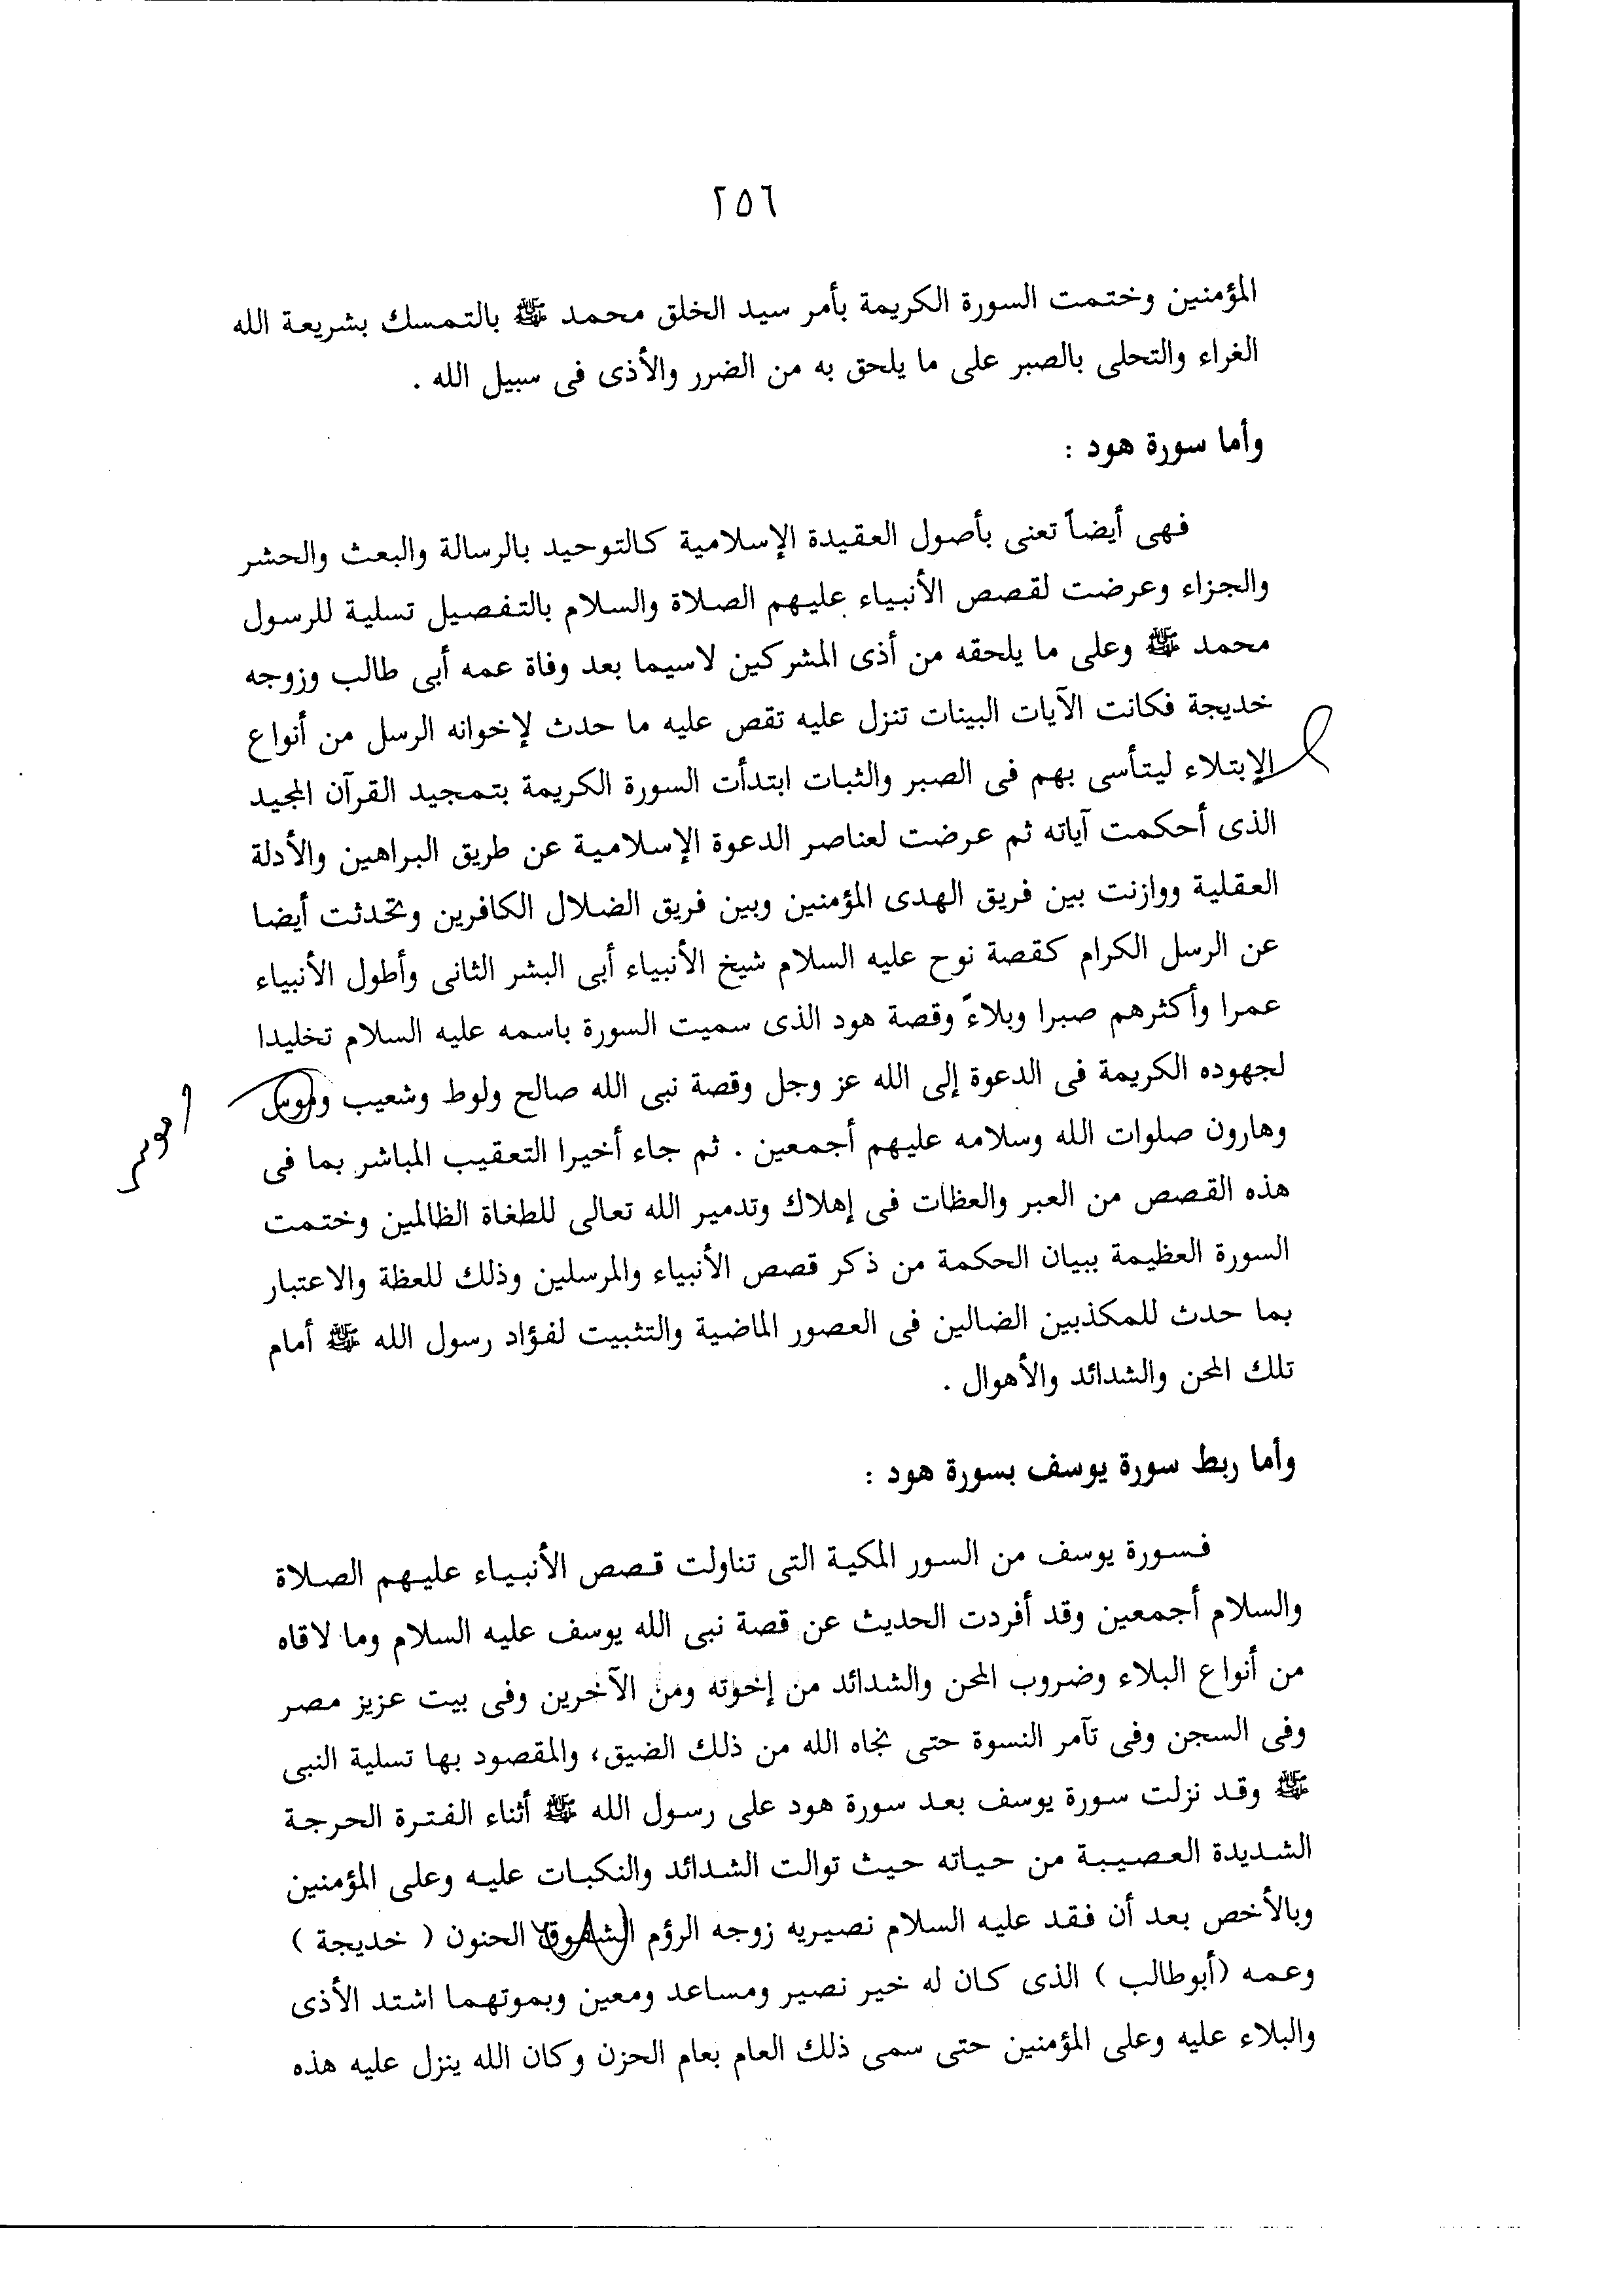 ٢٥٦
المؤمنين وختمت السورة الكريمة بأمر سيد الخلق محمد ﷺ بالتمسك بشريعة الله
الغراء والتحلى بالصبر على ما يلحق به من الضرر والأذى فى سبيل الله .
وأما سورة هود :
فهى أيضاً تعنى بأصول العقيدة الإسلامية كالتوحيد بالرسالة والبعث والحشر
والجزاء وعرضت لقصص الأنبياء عليهم الصلاة والسلام بالتفصيل تسلية للرسول
محمد ﷺ وعلى ما يلحقه من أذى المشركين لاسيما بعد وفاة عمه أبى طالب وزوجه
خديجة فكانت الآيات البينات تنزل عليه تقص عليه ما حدث لإخوانه الرسل من أنواع
الإبتلاء ليتأسى بهم فى الصبر والثبات ابتدأت السورة الكريمة بتمجيد القرآن المجيد
الذى أحكمت آياته ثم عرضت لعناصر الدعوة الإسلامية عن طريق البراهين والأدلة
العقلية ووازنت بين فريق الهدى المؤمنين وبين فريق الضلال الكافرين وتحدثت أيضا
عن الرسل الكرام كقصة نوح عليه السلام شيخ الأنبياء أبى البشر الثانى وأطول الأنبياء
عمرا وأكثرهم صبرا وبلاءً وقصة هود الذى سميت السورة باسمه عليه السلام تخليدا
لجهوده الكريمة فى الدعوة إلى الله عز وجل وقصة نبى الله صالح ولوط وشعيب وموس
موسى
وهارون صلوات الله وسلامه عليهم أجمعين . ثم جاء أخيرا التعقيب المباشر بما فى
هذه القصص من العبر والعظات فى إهلاك وتدمير الله تعالى للطغاة الظالمين وختمت
السورة العظيمة ببيان الحكمة من ذكر قصص الأنبياء والمرسلين وذلك للعظة والاعتبار
بما حدث للمكذبين الضالين فى العصور الماضية والتثبيت لفؤاد رسول الله ﷺ أمام
تلك المحن والشدائد والأهوال .
وأما ربط سورة يوسف بسورة هود :
فسورة يوسف من السور المكية التى تناولت قصص الأنبياء عليهم الصلاة
والسلام أجمعين وقد أفردت الحديث عن قصة نبى الله يوسف عليه السلام وما لاقاه
من أنواع البلاء وضروب المحن والشدائد من إخوته ومن الآخرين وفى بيت عزيز مصر
وفى السجن وفى تآمر النسوة حتى نجاه الله من ذلك الضيق، والمقصود بها تسلية النبى
ﷺ وقد نزلت سورة يوسف بعد سورة هود على رسول الله ﷺ أثناء الفترة الحرجة
الشديدة العصيبة من حياته حيث توالت الشدائد والنكبات عليه وعلى المؤمنين
وبالأخص بعد أن فقد عليه السلام نصيريه زوجه الرؤم الحنون ( خديجة )
وعمه (أبوطالب ) الذى كان له خير نصير ومساعد ومعين وبموتهما اشتد الأذى
والبلاء عليه وعلى المؤمنين حتى سمى ذلك العام بعام الحزن وكان الله ينزل عليه هذه